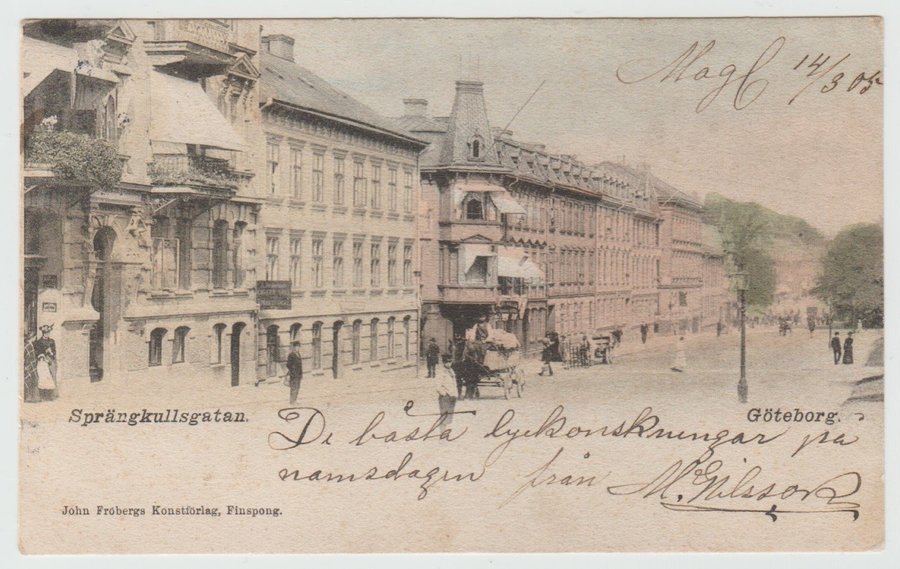 14/3 05
Sprängkullsgatan.
Göteborg.
De bästa lyckonskningar på
namsdagen från M. Nilsson
John Fröbergs Konstförlag, Finspong.